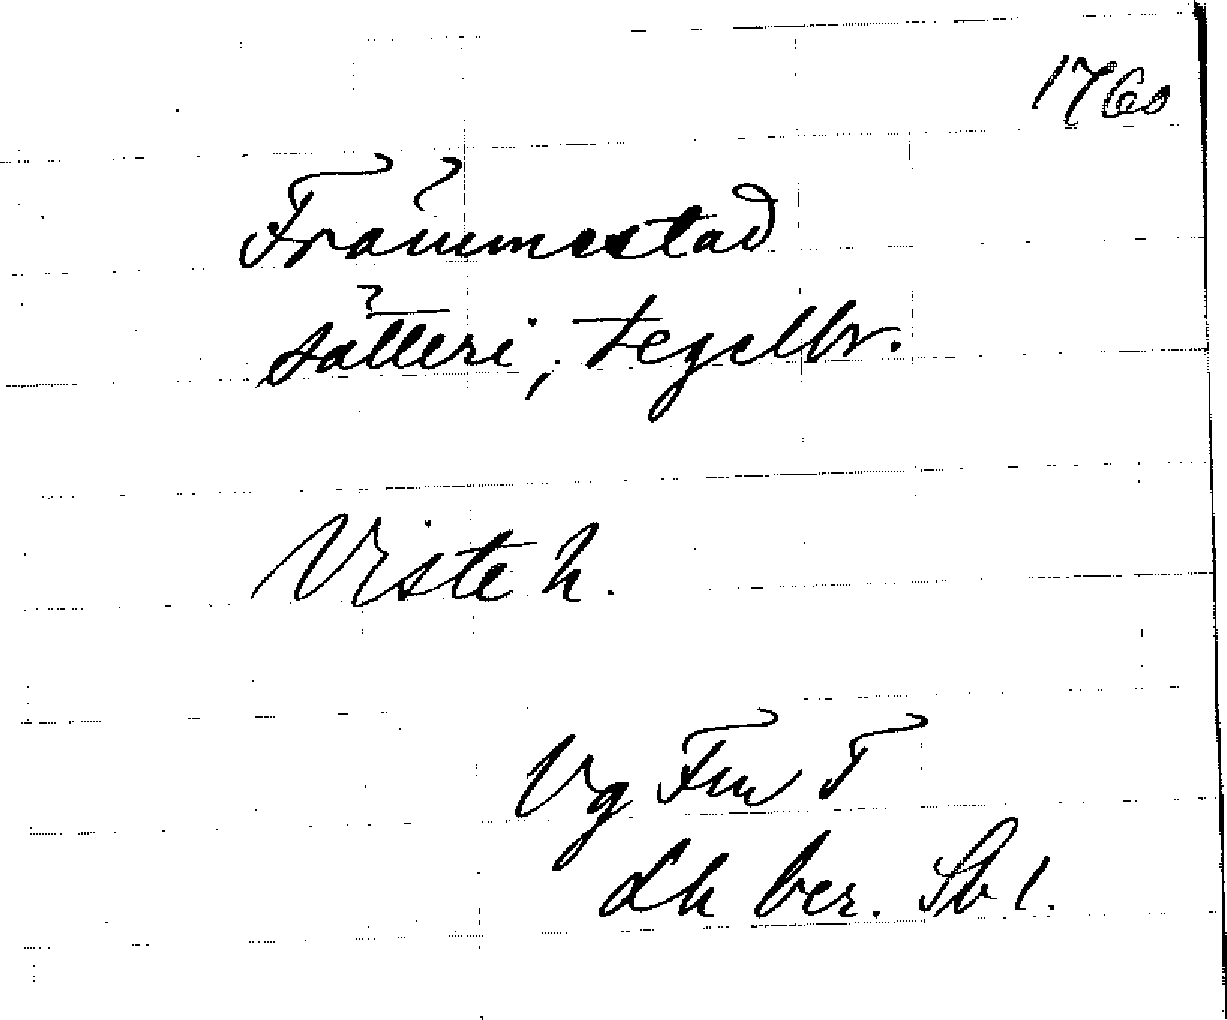 1760
Främmestad
säteri, tegelbr.
Viste h.
Vg Fm T
Lh ber. Sb 1.